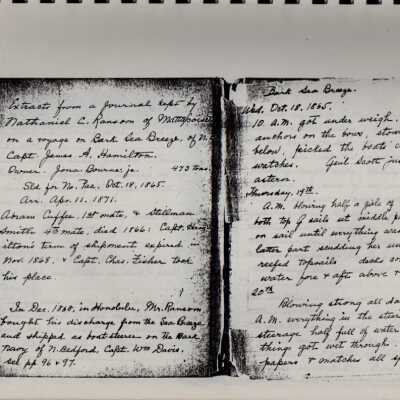 Extracts from a Journal kept by
Nathaniel C. Ransom of Mattapoisett
on a voyage on Bark Sea Breeze, of N.
Capt. James A. Hamilton.
Owner: Jona. Bourne, jr. 473 tons.
Sld for No. Pac. Oct. 18, 1865.
Arr. Apr. 11, 1871.
Abram Cuffee, 1st mate, & Stillman
Smith, 4th mate, died 1866: Capt. Ham-
ilton's term of shipment expired in
Nov. 1868, & Capt. Chas. Fisher took
his place.
In Dec. 1868, in Honolulu, Mr. Ransom
bought his discharge from the Sea Breeze
and shipped as boat steerer on the Bark
Navy of N. Bedford, Capt. Wm Davis.
see pp. 96 & 97.
Bark Sea Breeze.
Wed. Oct. 18, 1865.
10 A.M. got under weigh.
anchors on the bows, stow
below, picked the boats
watches. Geil Scott
astern.
Thursday, 19th.
A.M. Having half a gale of
both top g sails at middle
on sail until everything
later part scudding her un
reefed topsails decks
water fore & aft above &
20th
Blowing strong all da
A.M. everything in the stee
steerage half full of water
things got wet through.
papers & matches all sp